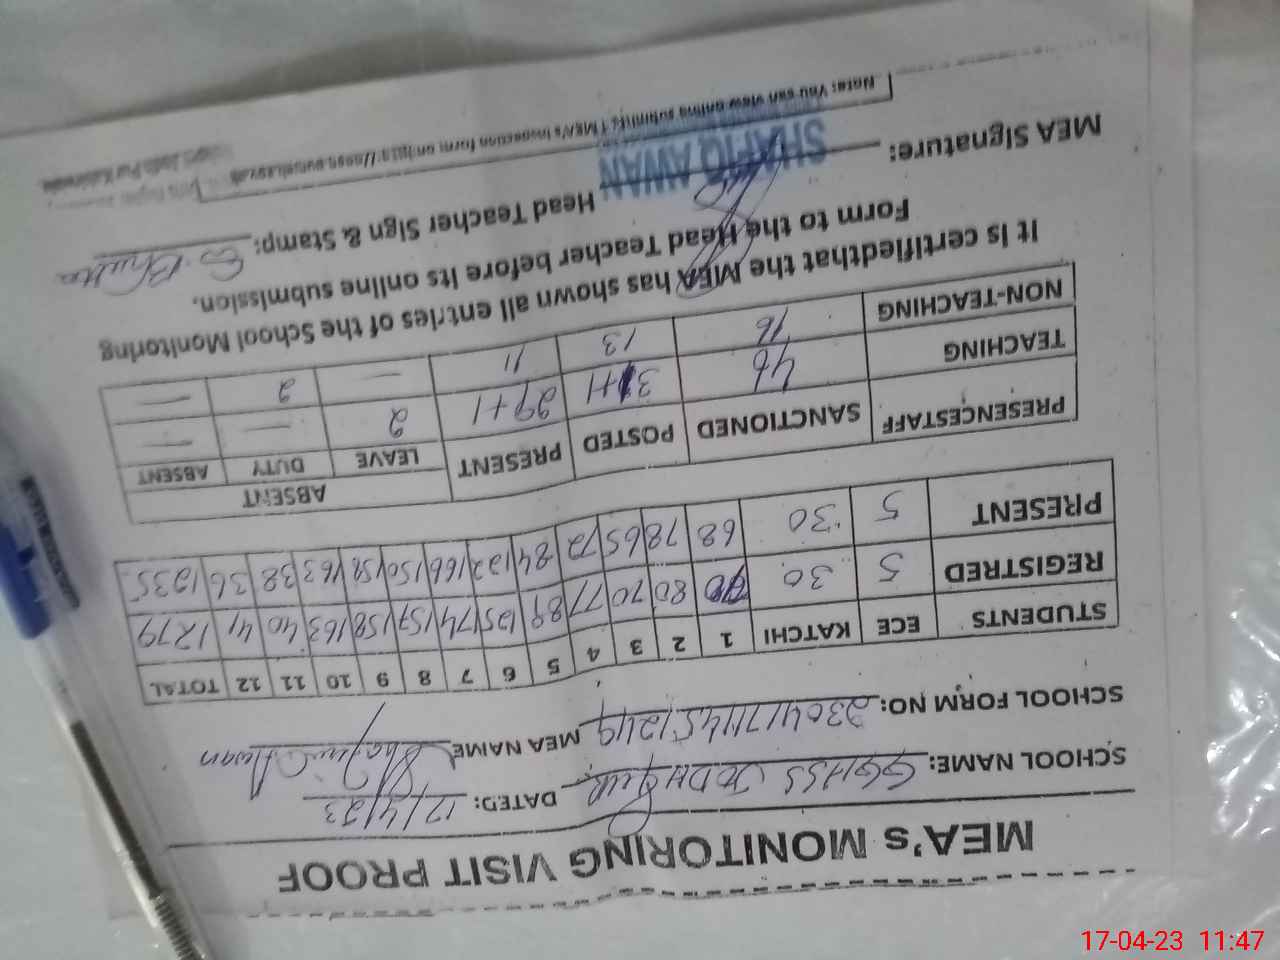 MEA's MONITORING VISIT PROOF
SCHOOL NAME: GGHSS JODHPUR DATED: 17/4/23
SCHOOL FORM NO: 230417114512419 MEA NAME Shafiq Awan
STUDENTS ECE KATCHI 1 2 3 4 5 6 7 8 9 10 11 12 TOTAL
REGISTRED 5 30 70 80 70 77 89 125 174 157 158 163 40 41 1279
PRESENT 5 30 68 78 65 72 84 122 166 150 158 163 38 36 1235
PRESENCESTAFF SANCTIONED POSTED PRESENT ABSENT
LEAVE DUTY ABSENT
TEACHING 46 31+1 29+1 2 — —
NON-TEACHING 16 13 11 — 2 —
It is certifiedthat the MEA has shown all entries of the School Monitoring
Form to the Head Teacher before its online submission.
MEA Signature: Head Teacher Sign & Stamp:
SHAFIQ AWAN
Note: You can view online submitted MEA's inspection form on
17-04-23 11:47